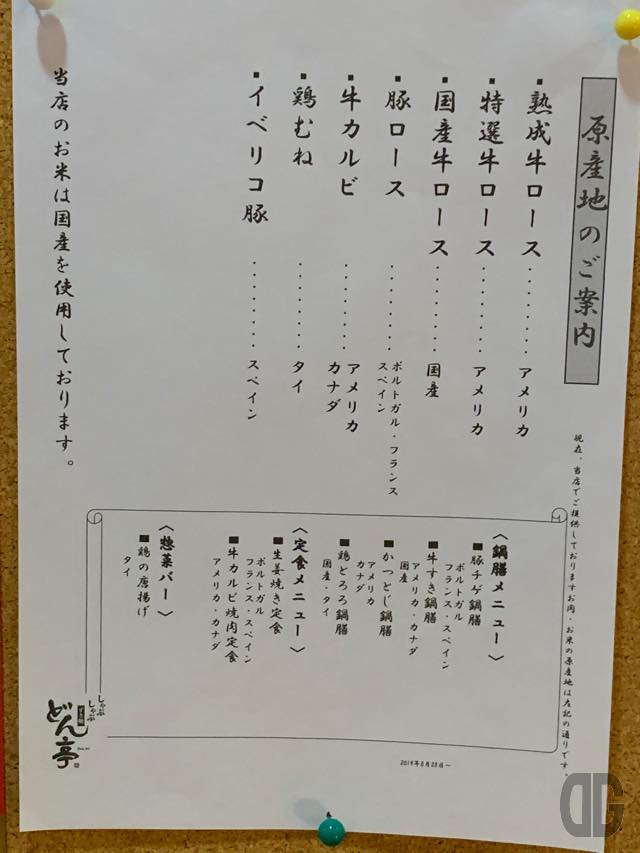 原産地のご案内
現在、当店でご提供しておりますお肉・お米の原産地は左記の通りです。
▪熟成牛ロース・・・・・・・・アメリカ
▪特選牛ロース・・・・・・・・アメリカ
▪国産牛ロース・・・・・・・・国産
▪豚ロース・・・・・・・・ポルトガル・フランス
スペイン
▪牛カルビ・・・・・・・・アメリカ
カナダ
▪鶏むね・・・・・・・・タイ
▪イベリコ豚・・・・・・・・スペイン
当店のお米は国産を使用しております。
〈鍋膳メニュー〉
■豚チゲ鍋膳
ポルトガル
フランス・スペイン
■牛すき鍋膳
アメリカ・カナダ
国産
■かつとじ鍋膳
アメリカ
カナダ
■鶏とろろ鍋膳
国産・タイ
〈定食メニュー〉
■生姜焼き定食
ポルトガル
フランス・スペイン
■牛カルビ焼肉定食
アメリカ・カナダ
〈惣菜バー〉
■鶏の唐揚げ
タイ
しゃぶ
しゃぶ
どん亭
DG